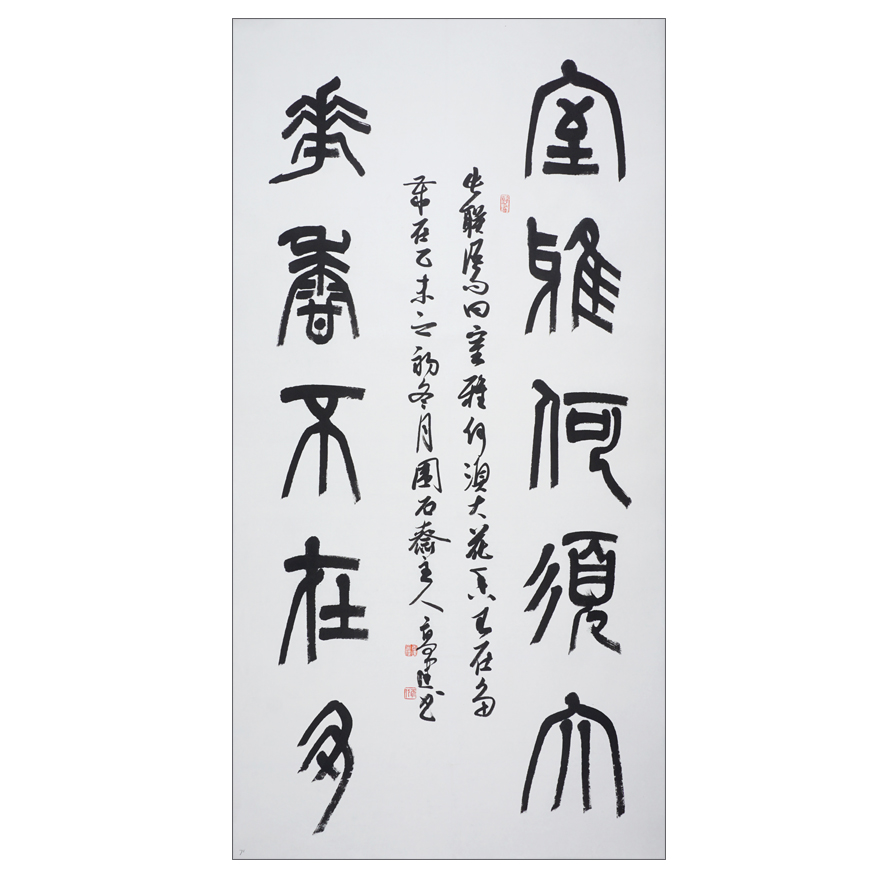 室雅何須大
聯曰室雅何須大花香不在多
歲在乙未之初冬月石齋主人書
華香不在多